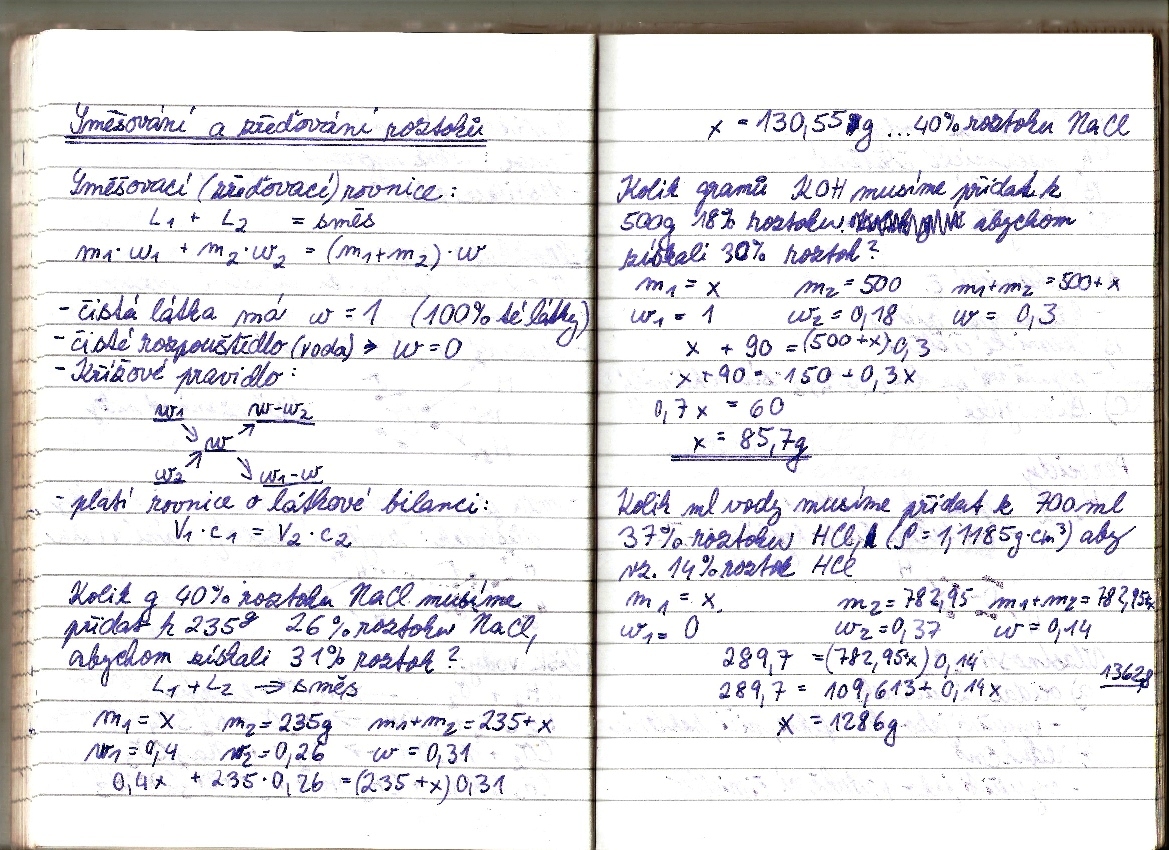 Směšování a zřeďování roztoků
Směšovací (zřeďovací) rovnice:
L1 + L2 = směs
m1·w1 + m2·w2 = (m1+m2)·w
- čistá látka má w = 1 (100% té látky)
- čisté rozpouštědlo (voda) → w = 0
- Křížové pravidlo:
w1 w-w2
w
w2 w1-w
- platí rovnice o látkové bilanci:
V1·c1 = V2·c2
Kolik g 40% roztoku NaCl musíme
přidat k 235g 26% roztoku NaCl,
abychom získali 31% roztok?
L1+L2 → směs
m1 = x m2 = 235g m1+m2 = 235+x
w1 = 0,4 w2 = 0,26 w = 0,31
0,4x + 235·0,26 = (235+x)0,31
x = 130,55g ...40% roztoku NaCl
Kolik gramů KOH musíme přidat k
500g 18% roztoku abychom
získali 30% roztok?
m1 = x m2 = 500 m1+m2 = 500+x
w1 = 1 w2 = 0,18 w = 0,3
x + 90 = (500+x)0,3
x+90 = 150 + 0,3x
0,7x = 60
x = 85,7g
Kolik ml vody musíme přidat k 700ml
37% roztoku HCl, (ρ = 1,1185g·cm³) aby
vz. 14% roztok HCl
m1 = x m2 = 782,95 m1+m2 = 782,95x
w1 = 0 w2 = 0,37 w = 0,14
289,7 = (782,95x) 0,14
289,7 = 109,613 + 0,14x 1362g
x = 1286g